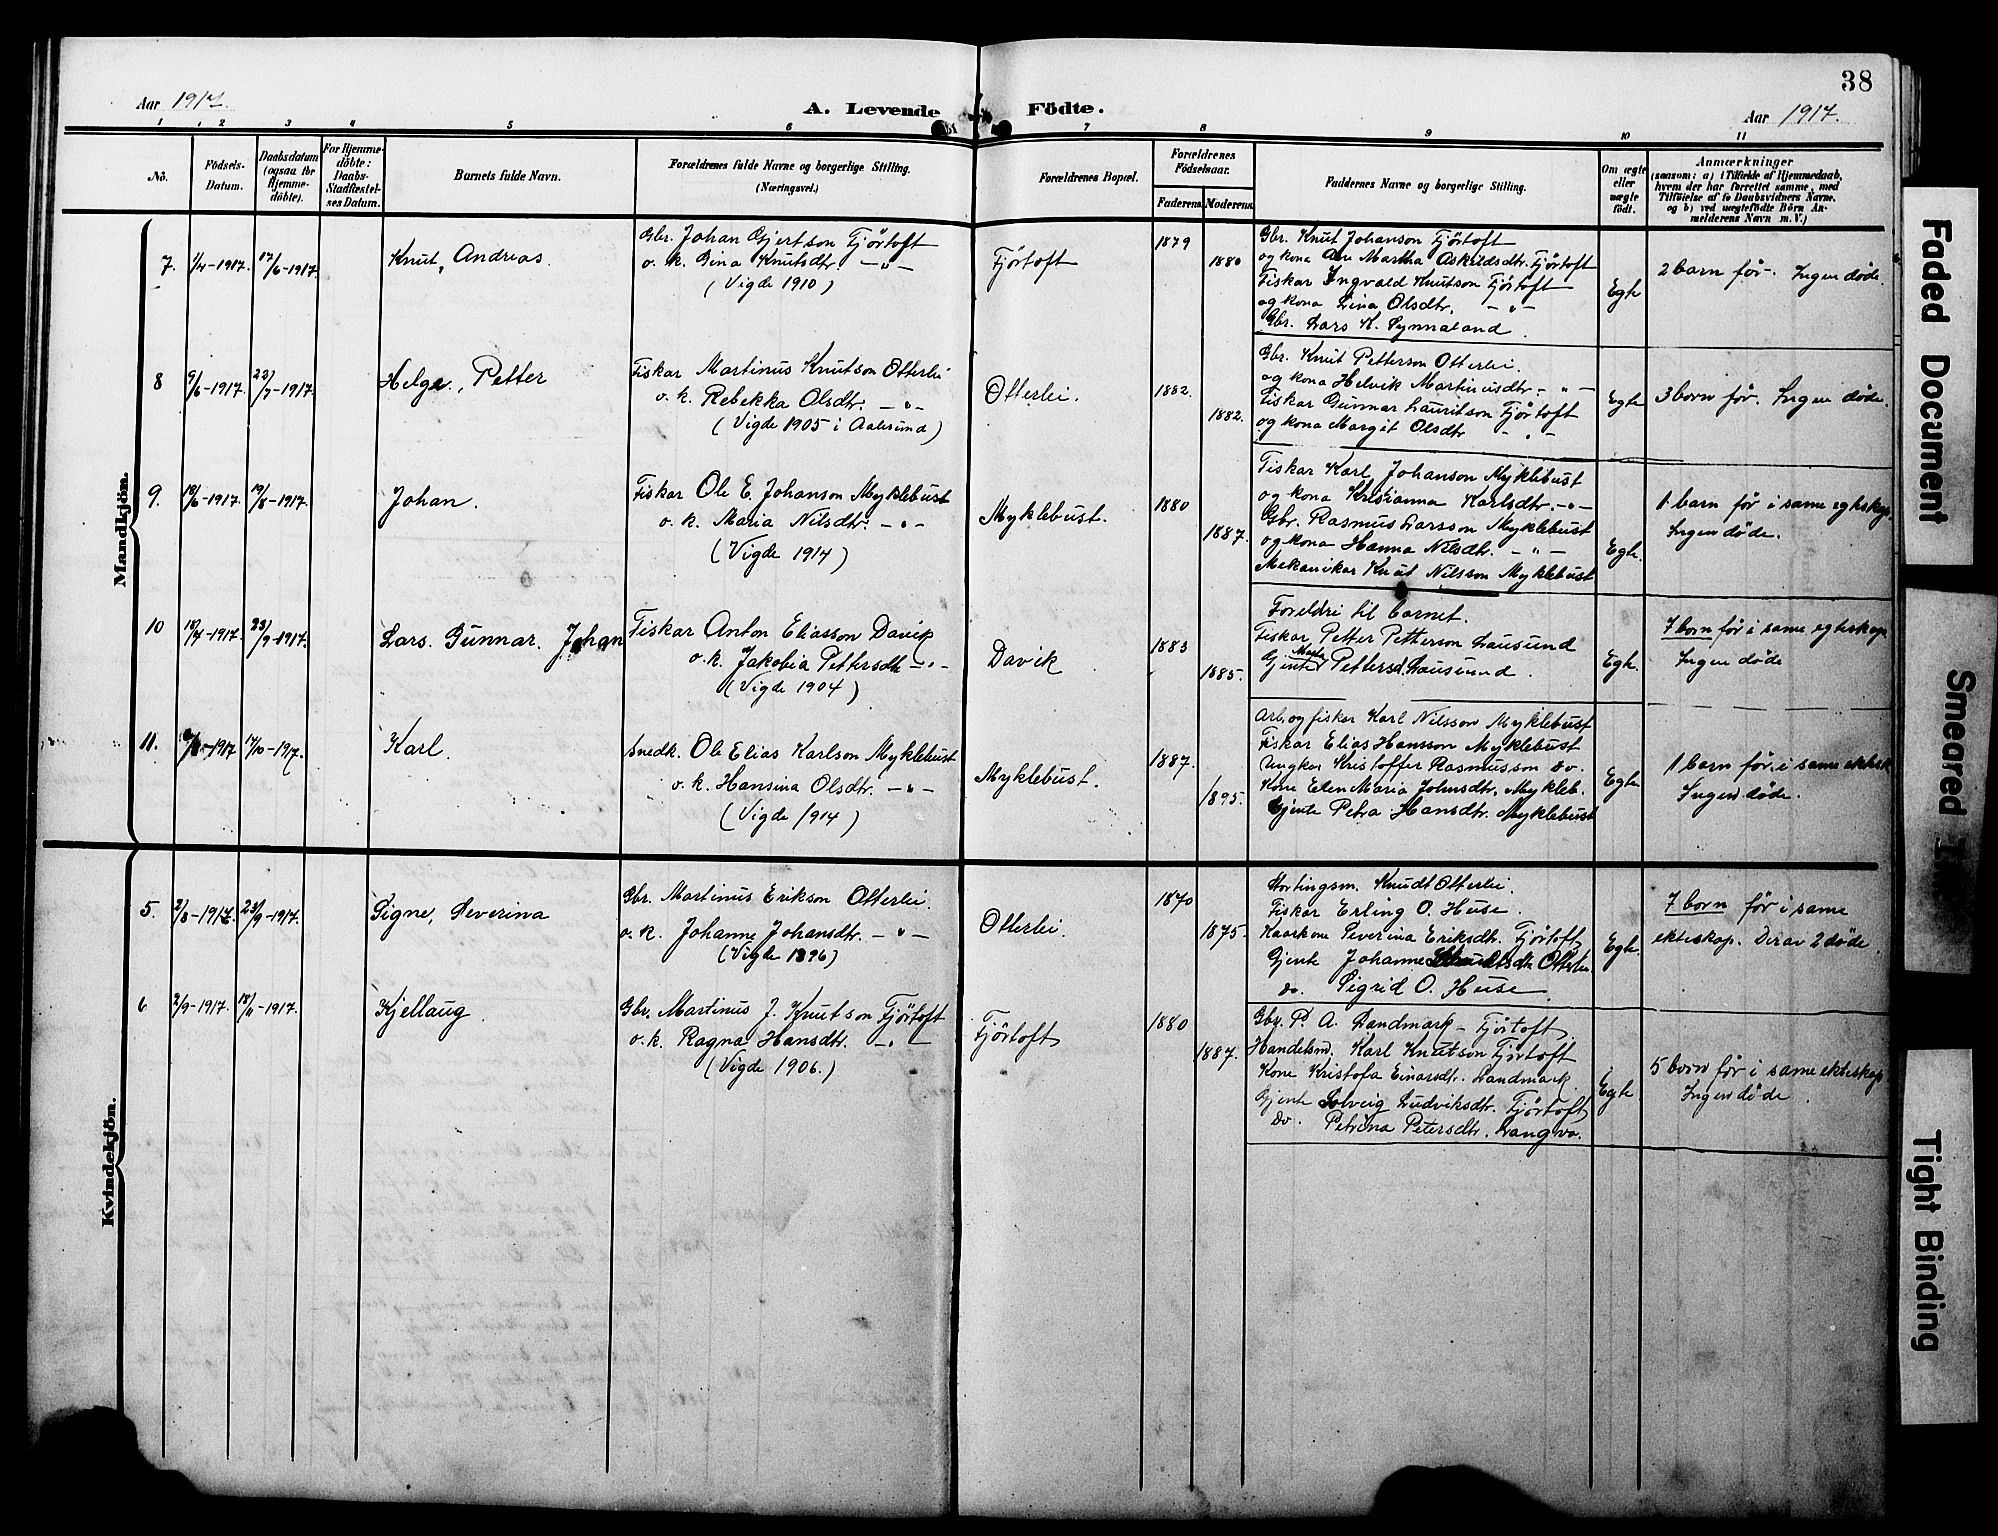 38
Aar 1917.
A. Levende Födte.
Aar 1917.
1 2 3 4 5 6 7 8 9 10 11
No.
Födsels-Datum.
Daabsdatum (ogsaa for Hjemmedöbte).
For Hjemmedöbte: Daabs-Stadfæstelses Datum.
Barnets fulde Navn.
Forældrenes fulde Navne og borgerlige Stilling. (Næringsvei.)
Forældrenes Bopæl.
Forældrenes Födselsaar.
Faderens. Moderens.
Faddernes Navne og borgerlige Stilling.
Om ægte eller uægte födt.
Anmærkninger
(saasom: a) i Tilfælde af Hjemmedaab, hvem der har forrettet samme, med Tilföielse af to Daabsvidners Navne, og b) ved uægtefödte Börn Anmelderens Navn m. V.)
Mandkjön.
7. 1/4-1917. 17/6-1917. Knut, Andreas.
Gbr. Johan Gjertson Fjörtoft
o. k. Gina Knutsdtr. -"-
(Vigde 1910)
Fjörtoft
1879
1880
Gbr. Knut Johanson Fjörtoft
og kona Ane Martha Askildsdtr. Fjörtoft
Fiskar Ingvald Knutson Fjörtoft
og kona Lina Olsdtr. -"-
Gbr. Lars K. Synnaland.
Egte
2 barn før. Ingen døde.
8 9/6-1917. 22/7-1917. Helge, Petter
Fiskar Martinus Knutson Otterlei
o. k. Rebekka Olsdtr. -"-
(Vigde 1905 i Aalesund)
Otterlei.
1882.
1882.
Gbr. Knut Petterson Otterlei.
og kona Helvik Martinusdtr -"-
Fiskar Gunnar Lauritson Fjörtoft
og kona Margit Olsdtr -"-
Egte
3 born før. Ingen døde.
9. /6-1917. 19/8-1917. Johan.
Fiskar Ole E. Johanson Myklebust
o. k. Maria Nilsdtr. -"-
(Vigde 1914)
Myklebust.
1880
1887.
Fiskar Karl Johanson Myklebust
og kona Kristianna Karlsdtr. -"-
Gbr. Rasmus Larsson Myklebust
og kona Hanna Nilsdtr. -"-
Mekanikar Knut Nilsson Myklebust
Egte.
1. barn før i same egteskap.
Ingen døde.
10 /7-1917. 23/9-1917. Lars. Gunnar. Johan
Fiskar Anton Eliasson Davik
o. k. Jakobia Pettersdtr -"-
(Vigde 1904)
Davik
1883
1885.
Foreldri til barnet.
Fiskar Petter Petterson Lausund
Gjente Pettersd. Lausund.
Egte
7 born før i same egteskap.
Ingen døde
11. -1917 14/10-1917. Karl.
Snedk. Ole Elias Karlson Myklebust
o. k. Hansina Olsdtr. -"-
(Vigde 1914)
Myklebust.
1887.
1895.
Arb. og fiskar Karl Nilsson Myklebust
Fiskar Elias Hansson Myklebust
Ungkar Kristoffer Rasmusson do.
Kone Elen Maria Johnsdtr. Mykleb.
Gjente Petra Hansdtr. Myklebust
Egte
1 barn før i same ektesk
Ingen døde.
Kvindekjön.
5. 2/8-1917. 23/9-1917. Signe, Severina
Gbr. Martinus Erikson Otterlei.
o. k. Johanne Johansdtr. -"-
(Vigde 1896)
Otterlei.
1870
1875.
Stortingsm. Knudt Otterlei.
Fiskar Erling O. Huse.
Kaarkone Severina Eriksdtr. Fjörtoft,
Gjente Johanne Otterlei.
do. Sigrid O. Huse.
Egte.
7 born før i same
ekteskap. Derav 2 døde.
6 2/9-1917. 18/11-1917. Kjellaug.
Gbr. Martinus J. Knutson Fjörtoft
o. k. Ragna Hansdtr. -"-
(Vigde 1906.)
Fjörtoft
1880
1887.
Gbr. P. A. Landmark - Fjörtoft,
Handelsm. Karl Knutson Fjörtoft
Kone Kristofa Einarsdtr. Landmark.
Gjente Solveig Ludviksdtr. Fjörtoft
do. Petrina Petersdtr. Langva.
Egte
5 born før i same ekteskap
Ingen døde.
Faded Document
Smeared
Tight Binding